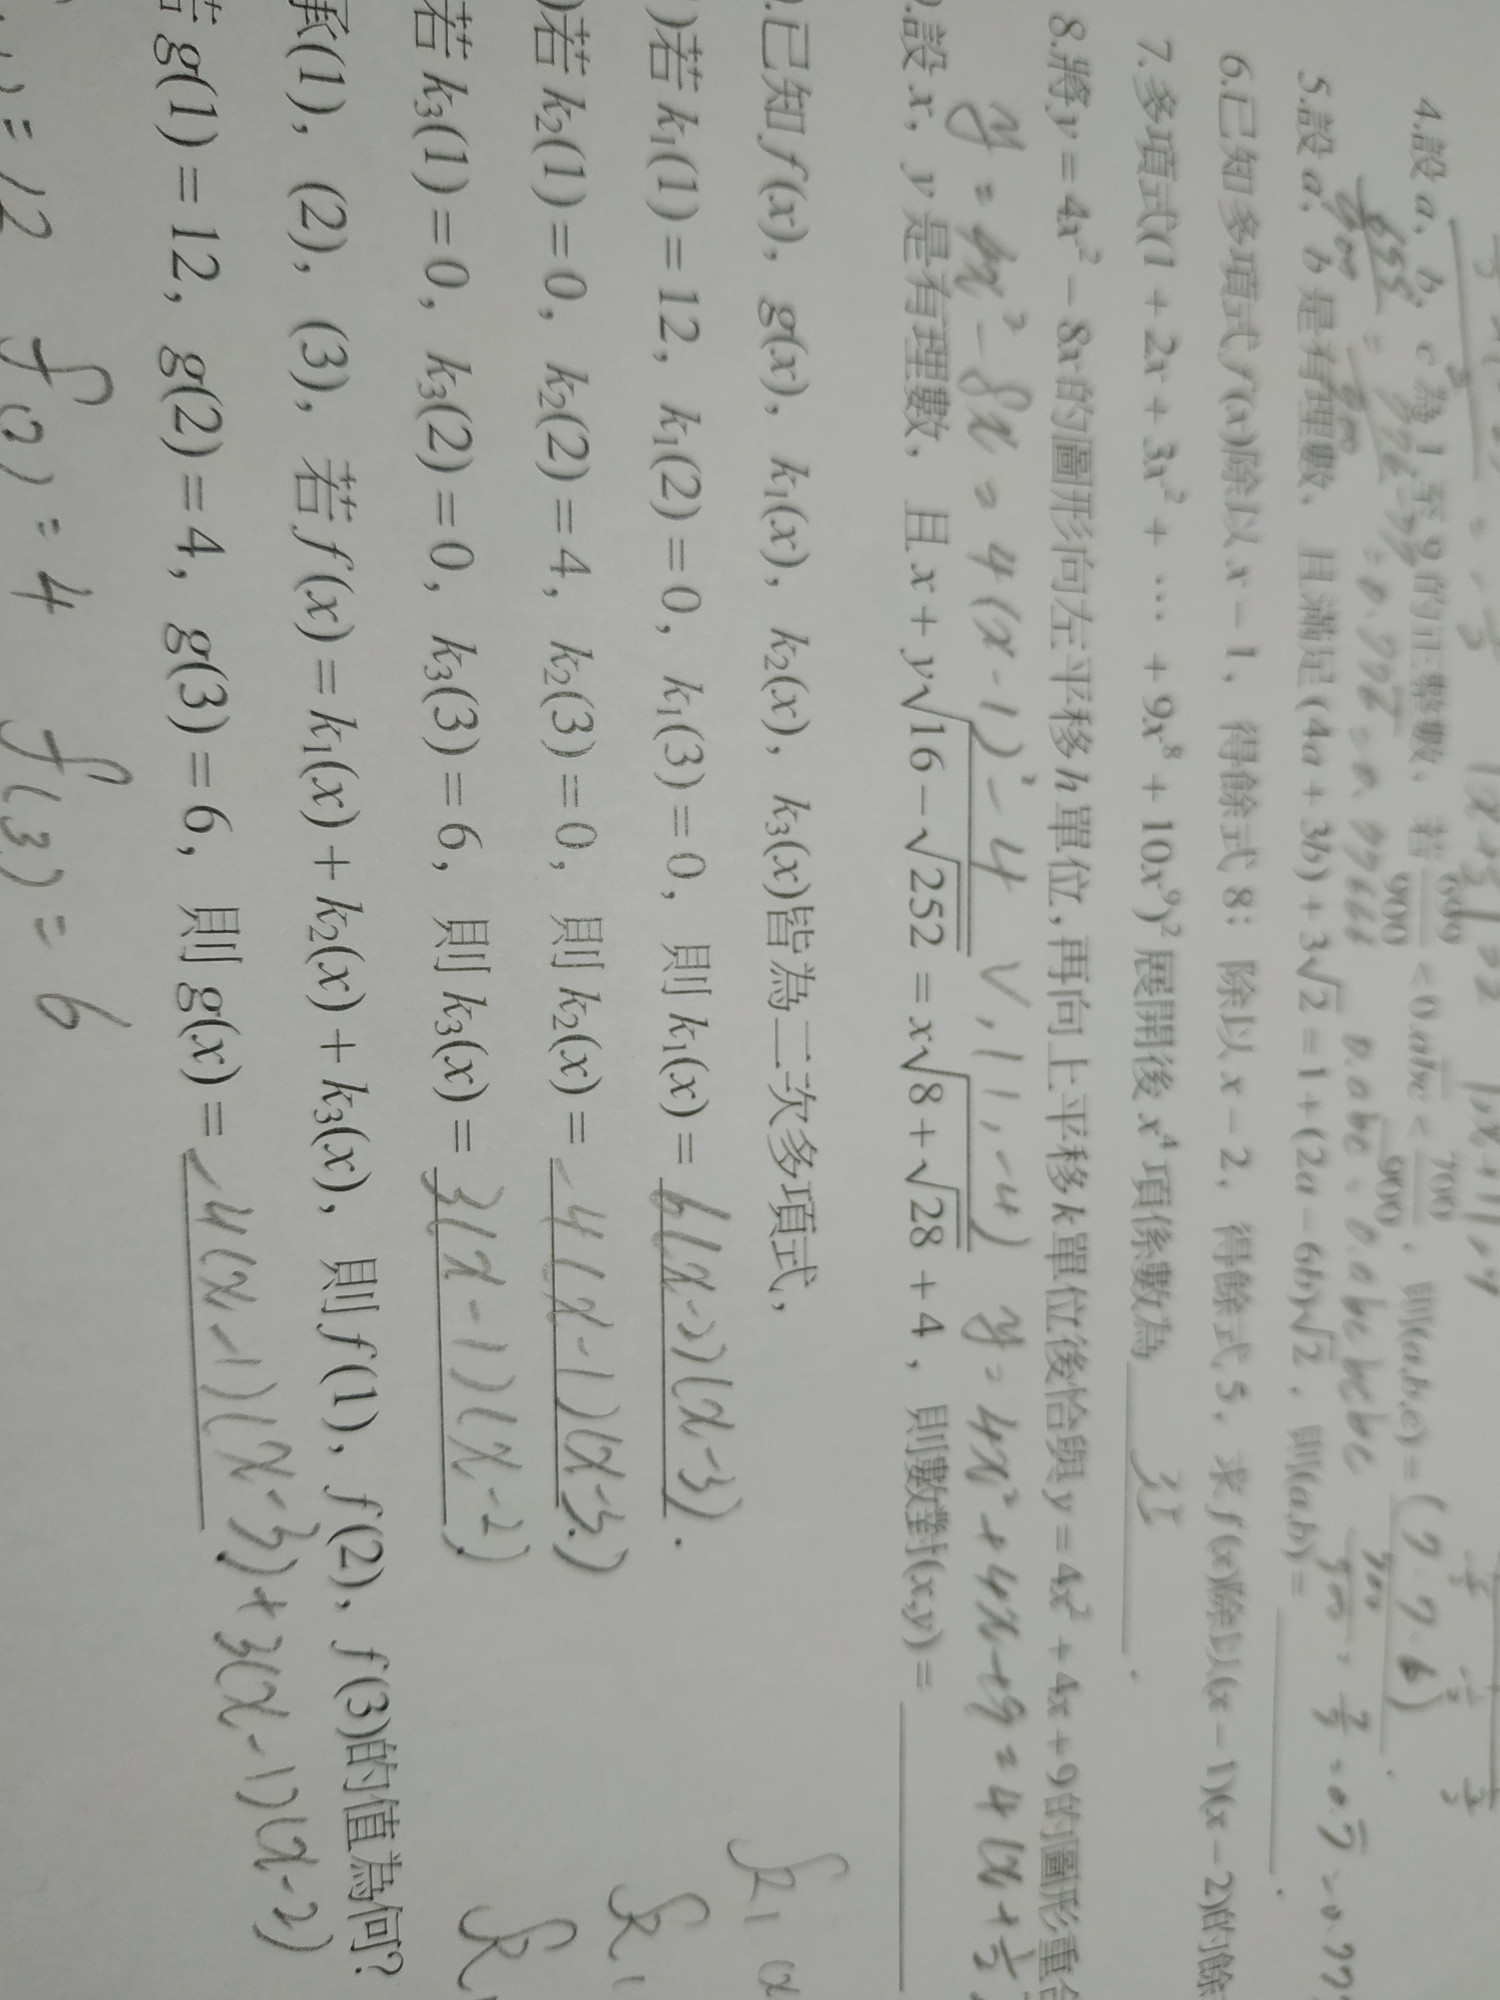 4.設 a, b, c 為 1 至 9 的正整數, 若 600/900 < 0.abc < 700/900, 則(a,b,c) = (7.7.6)
5.設 a, b 是有理數, 且滿足 (4a + 3b) + 3√2 = 1 + (2a − 6b)√2, 則(a,b) =
6.已知多項式 f(x)除以 x − 1, 得餘式 8; 除以 x − 2, 得餘式 5, 求 f(x)除以(x − 1)(x − 2)的餘
7.多項式(1 + 2x + 3x² + ⋯ + 9x⁸ + 10x⁹)² 展開後 x⁴ 項係數為 35 .
8.將 y = 4x² − 8x 的圖形向左平移 h 單位, 再向上平移 k 單位後恰與 y = 4x² + 4x + 9 的圖形重合
y = 4x² − 8x = 4(x − 1)² − 4 V(1, −4) y = 4x² + 4x + 9 = 4(x + 1/2)
.設 x, y 是有理數, 且 x + y√(16 − √252) = x√(8 + √28) + 4, 則數對(x,y) =
.已知 f(x), g(x), k₁(x), k₂(x), k₃(x)皆為二次多項式,
)若 k₁(1) = 12, k₁(2) = 0, k₁(3) = 0, 則 k₁(x) = 6(x−2)(x−3) .
)若 k₂(1) = 0, k₂(2) = 4, k₂(3) = 0, 則 k₂(x) = −4(x−1)(x−3)
若 k₃(1) = 0, k₃(2) = 0, k₃(3) = 6, 則 k₃(x) = 3(x−1)(x−2)
承(1), (2), (3), 若 f(x) = k₁(x) + k₂(x) + k₃(x), 則 f(1), f(2), f(3)的值為何?
若 g(1) = 12, g(2) = 4, g(3) = 6, 則 g(x) = −4(x−1)(x−3)+3(x−1)(x−2)
= 12 f(2) = 4 f(3) = 6